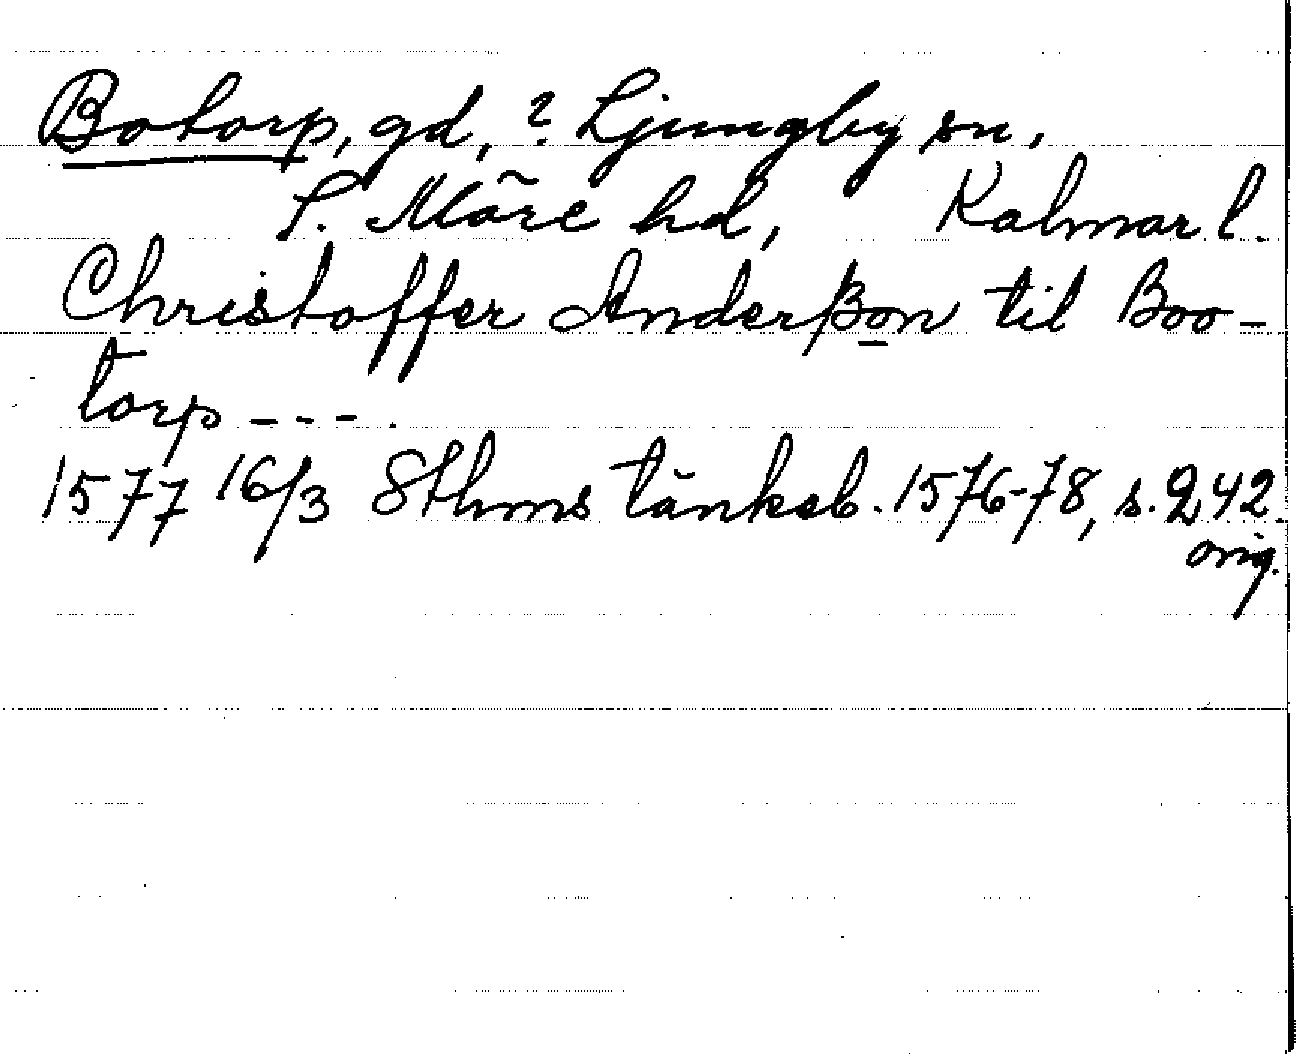 Botorp, gd, ? Ljungby sn,
S. Möre hd, Kalmar l.
Christoffer Anderßon til Boo-
torp - - - .
1577 16/3 Sthms tänkeb. 1576-78, s. 242.
orig.